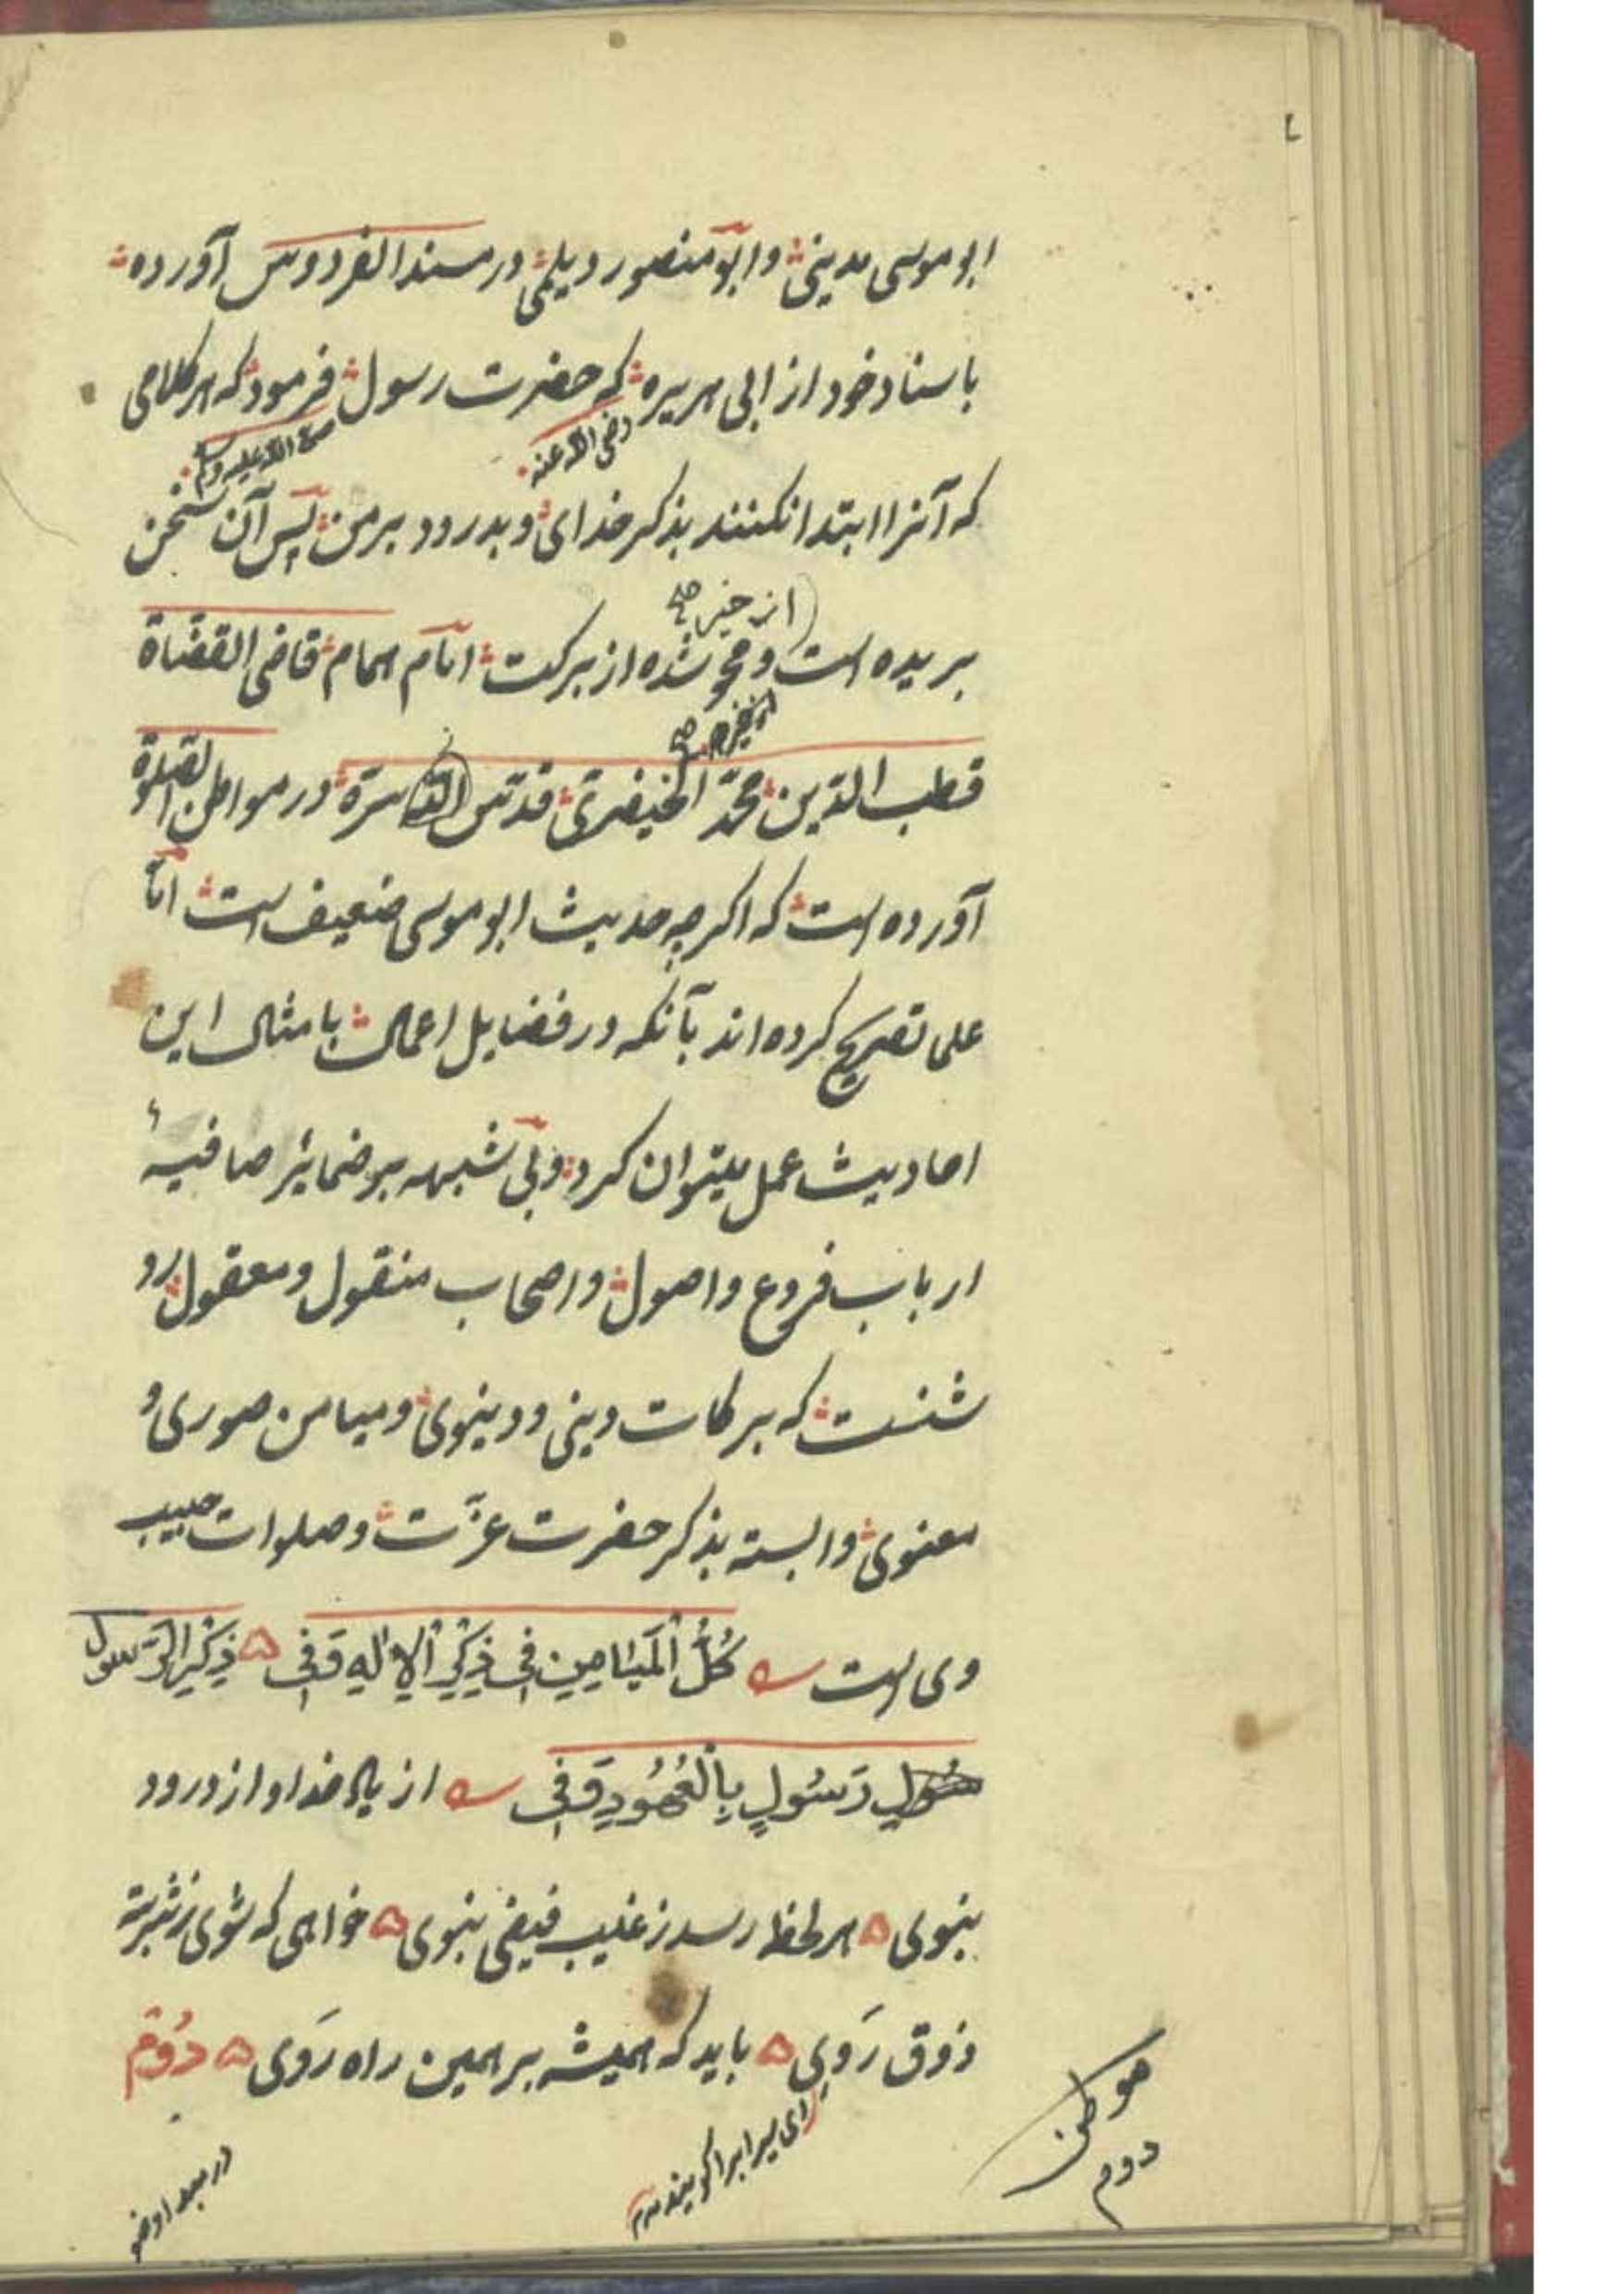 ابو موسی مدینی وابو منصور دیلمی در مسند الفردوس آورده
باسناد خود از ابی هریره که حضرت رسول فرمود که هر کلامی
رضی الله عنه
صلی الله علیه وسلم
که آنرا ابتدا نکنند بذکر خدای وبدرود بر من پس آن سخن
از خیر صح
بریده است ومحو شده از برکت امام همام قاضی القضاة
قطب الدین محمد الخیضری قدس الله سره در مواطن الصلوة
آورده است که اکرچه حدیث ابو موسی ضعیف است اما
علما تصریح کرده اند بآنکه در فضایل اعمال بامثال این
احادیث عمل میتوان کرد وبی شبهه بر ضمائر صافیهٔ
ارباب فروع واصول واصحاب منقول ومعقول رو
شنست که برکات دینی ودینوی ومیامن صوری و
معنوی وابسته بذکر حضرت عزّت وصلوات حبیب
وی است كُلُّ الْمَيَامِينِ فِي ذِكْرِ الْإِلٰهِ وَفِي ذِكْرِ الرَّسُولِ
رَسُولٍ بِالْعُهُودِ وَفِي از یاد خدا واز درود
نبوی هر لحظه رسد ز غیب فیض نبوی خواهی که شوی ز شربت
ذوق رَوِی باید که همیشه بر همین راه رَوِی دُوُم
موطن
دوم
ای سیراب را کویند
در بعد اوضو